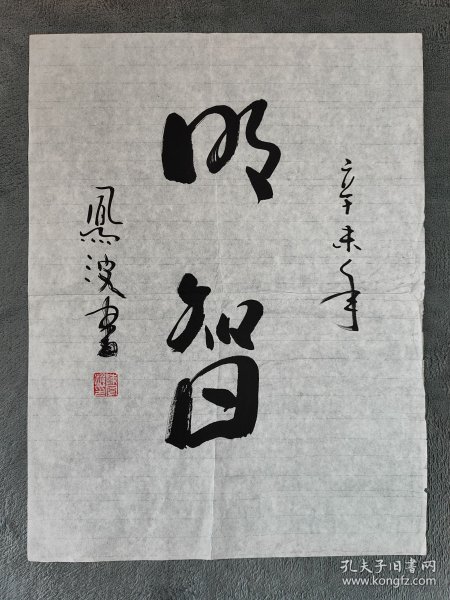 辛未年
明智
鳳波書
孔夫子旧书网
www.kongfz.com